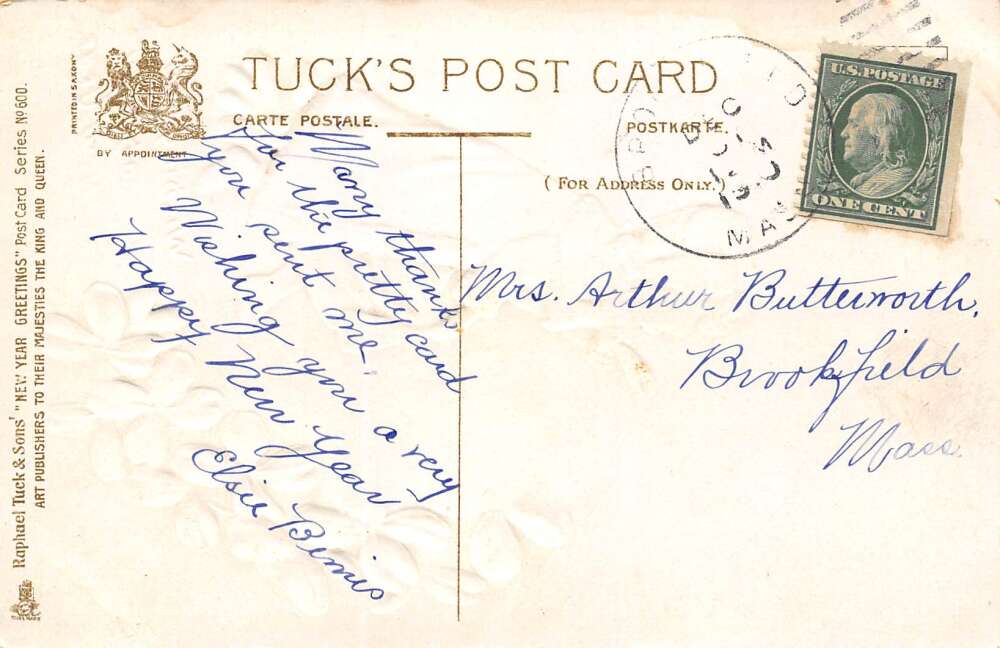 TUCK'S POST CARD
CARTE POSTALE.
POSTKARTE.
(FOR ADDRESS ONLY.)
BY APPOINTMENT
PRINTED IN SAXONY
Raphael Tuck & Sons' "NEW YEAR GREETINGS" Post Card Series Nº 600.
ART PUBLISHERS TO THEIR MAJESTIES THE KING AND QUEEN.
U.S. POSTAGE
ONE CENT
DEC
MASS
Many thanks
for the pretty card
you sent me.
Wishing you a very
Happy New Year
Elsie Bemis
Mrs. Arthur Butterworth,
Brookfield
Mass.